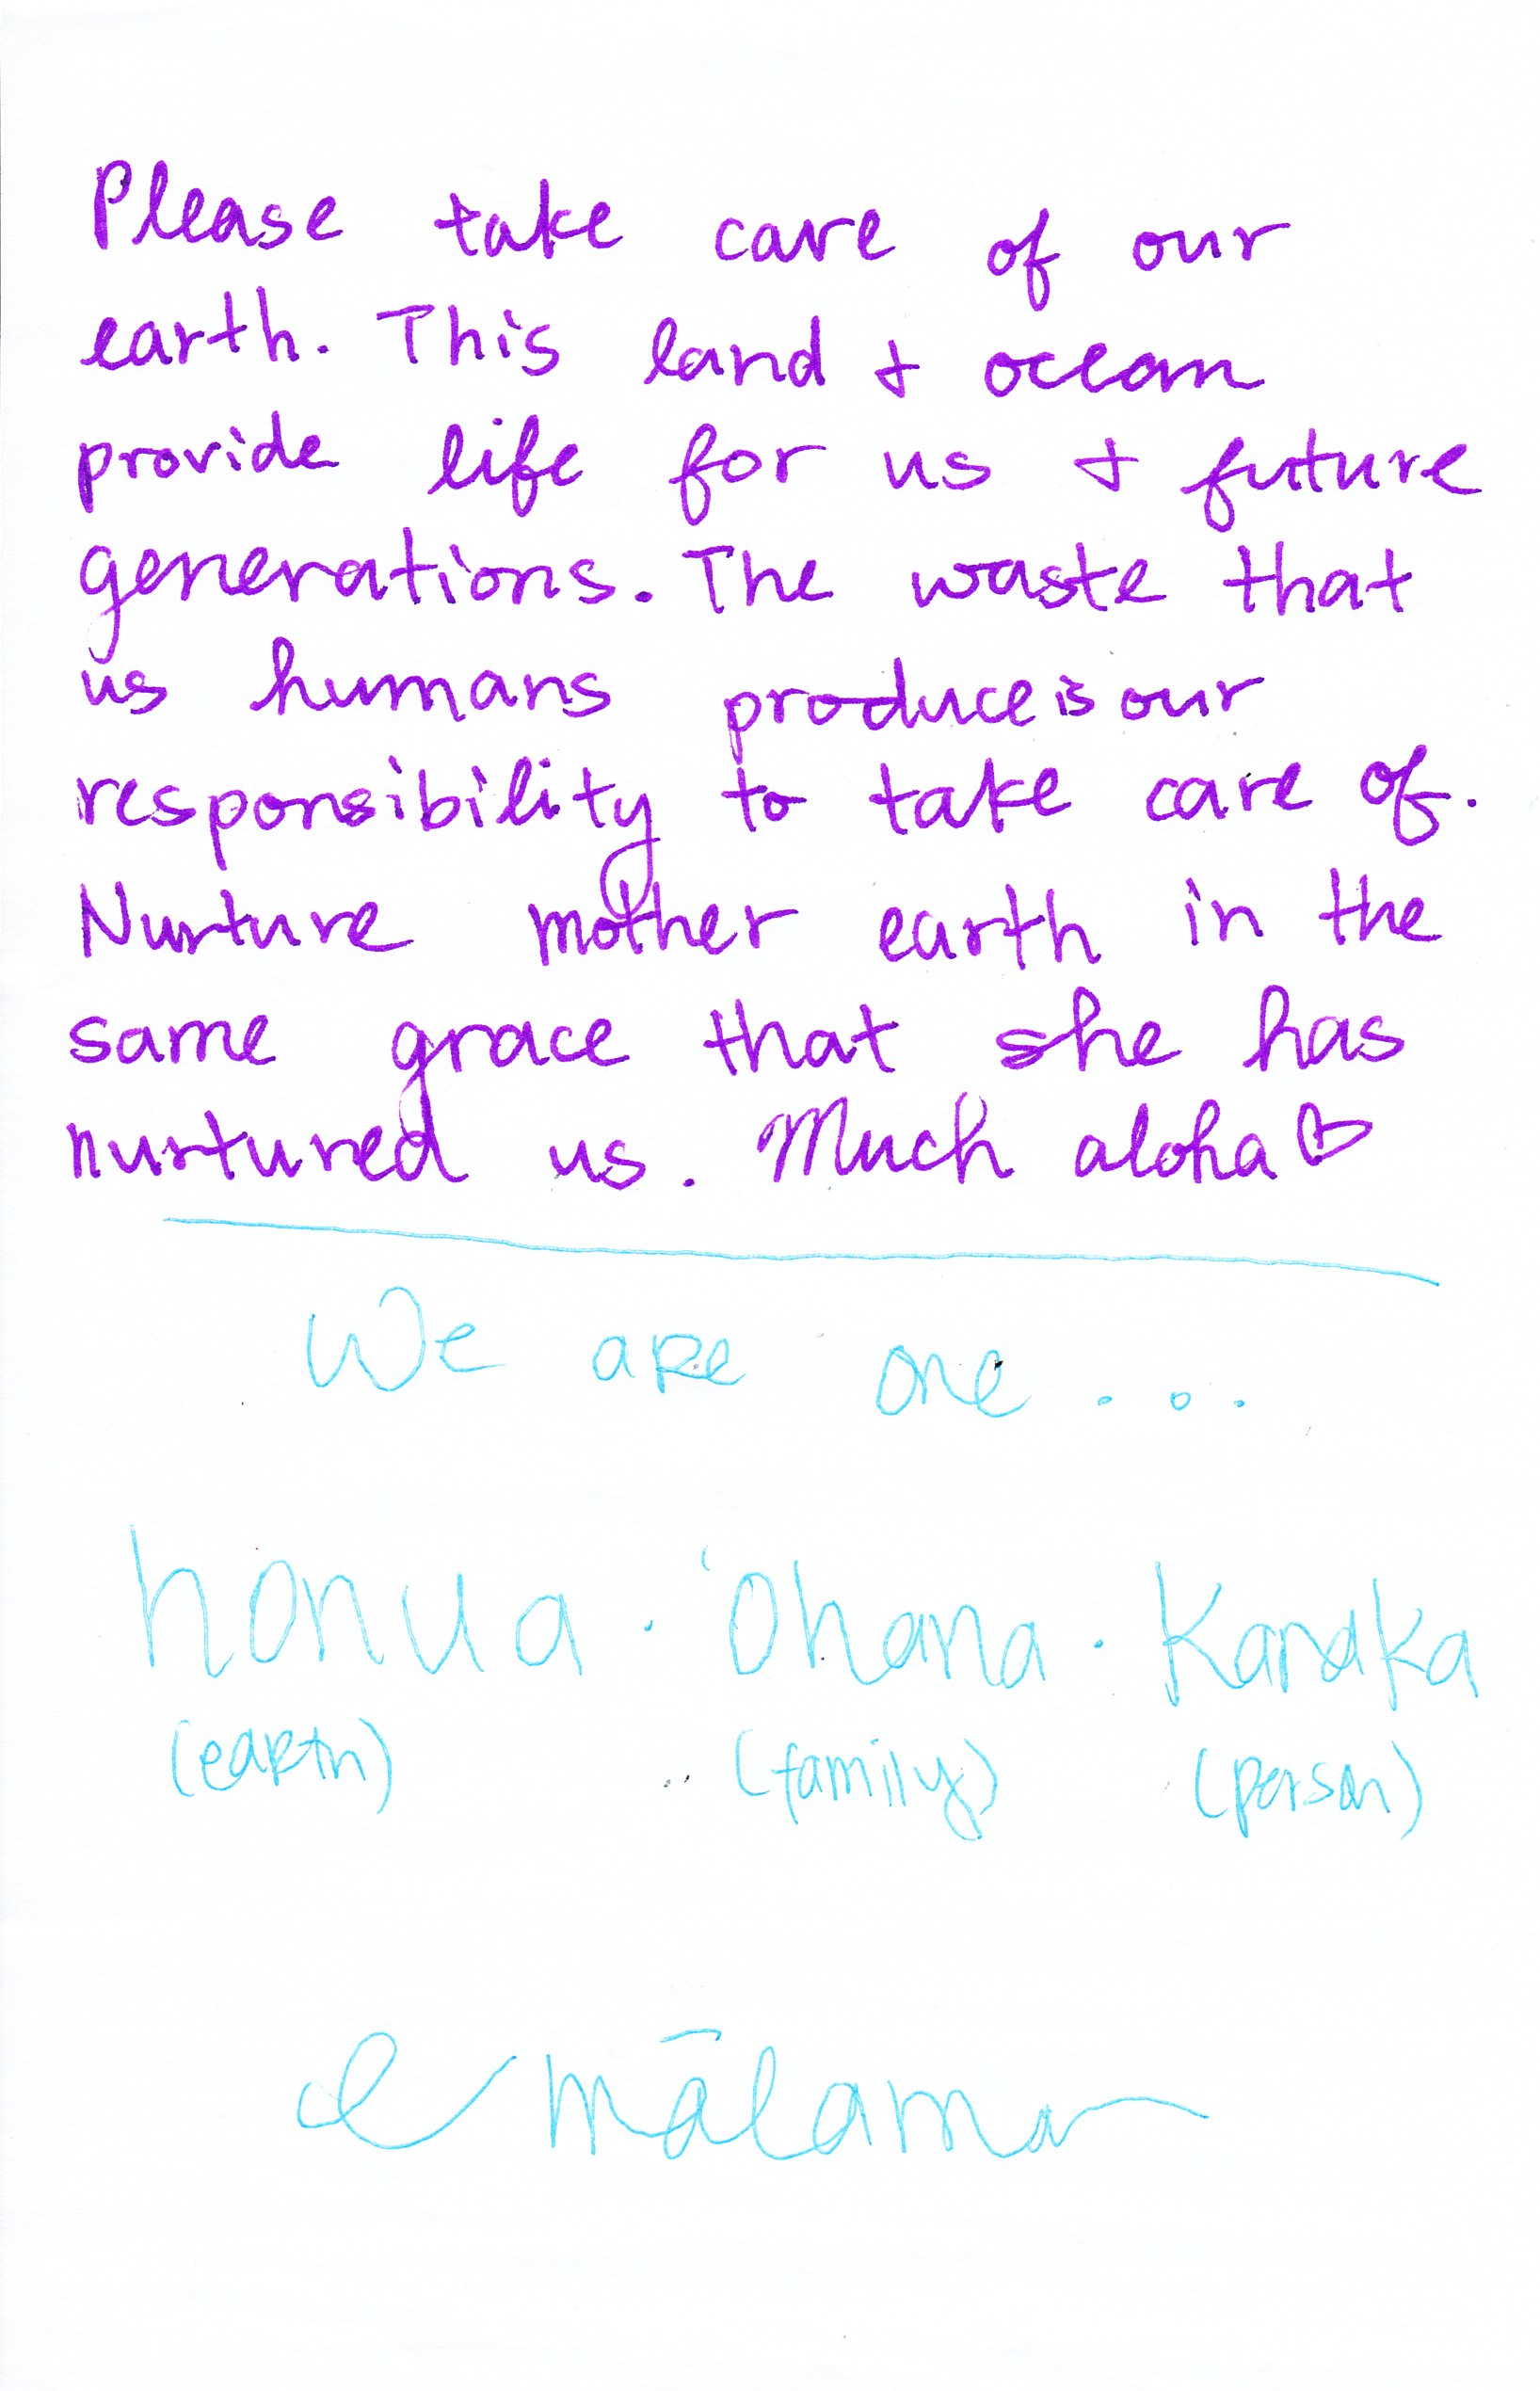 Please take care of our
earth. This land + ocean
provide life for us + future
generations. The waste that
us humans produce is our
responsibility to take care of.
Nurture mother earth in the
same grace that she has
nurtured us. Much aloha♡
We are one...
honua · ʻohana · Kanaka
(earth) (family) (person)
e mālama